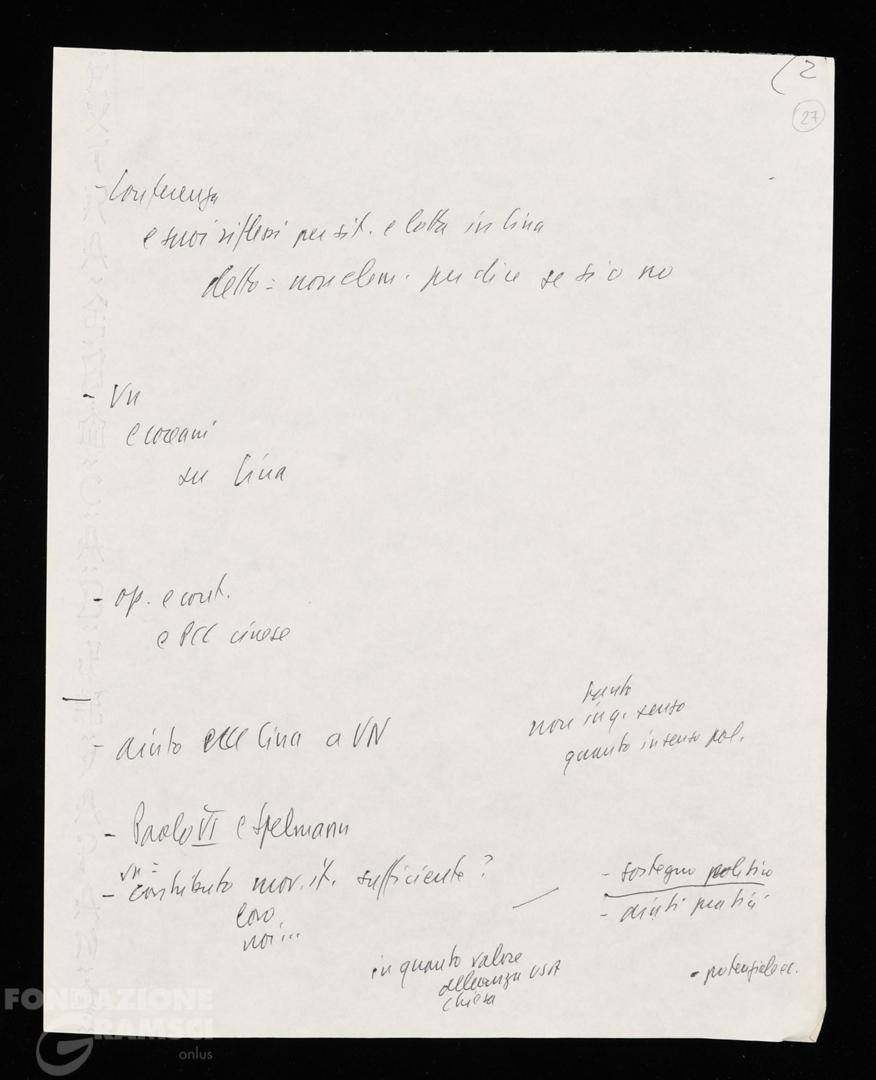 (2
27
- Conferenza
e suoi riflessi per sit. e lotta in Cina
detto = non elem. per dire se sì o no
- Vn
e coreani
su Cina
- op. e cont.
e PCC cinese
- aiuto Cina a VN
tanto
non in q. senso
quanto in senso pol.
- Paolo VI e Spelmann
vn =
- contributo mov. it. sufficiente?
loro
noi...
- sostegno politico
- aiuti pratici
in quanto valore
alleanza USA
chiesa
- potenziale ec.
FONDAZIONE
GRAMSCI
onlus